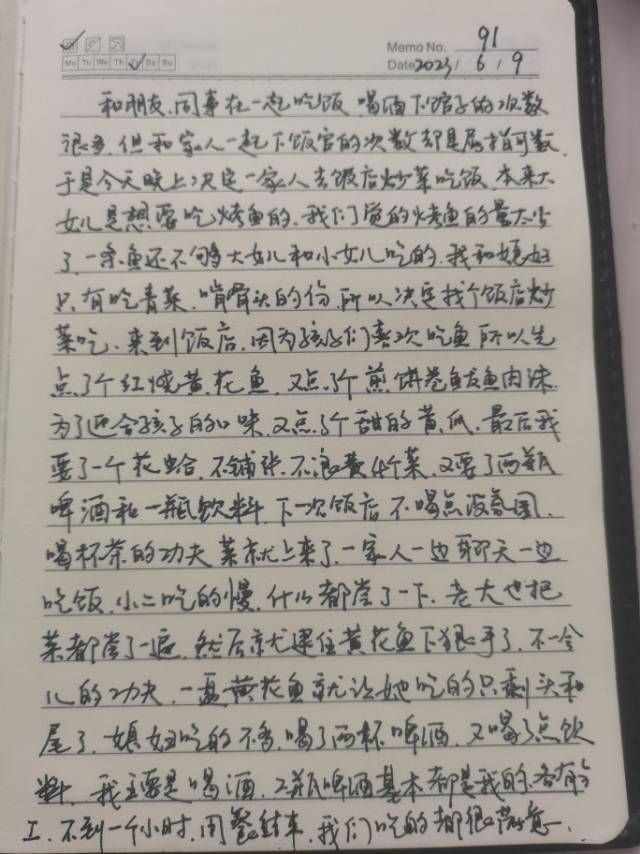 Memo No. 91
Mo Tu We Th Fr Sa Su
Date 2023 / 6 / 9
和朋友、同事在一起吃饭、喝酒下馆子的次数
很多,但和家人一起下饭馆的次数却是屈指可数,
于是今天晚上决定一家人去饭店炒菜吃饭,本来大
女儿是想要吃烤鱼的,我们觉的烤鱼的量太少
了,一条鱼还不够大女儿和小女儿吃的,我和媳妇
只有吃青菜,啃骨头的份,所以决定找个饭店炒
菜吃,来到饭店,因为孩子们喜欢吃鱼所以先
点了个红烧黄花鱼,又点了个煎饼卷鲅鱼肉沫
为了迎合孩子的口味,又点了个甜的黄瓜,最后我
要了一个花蛤,不铺张,不浪费4个菜,又要了两瓶
啤酒和一瓶饮料,下一次饭店不喝点没氛围,
喝杯茶的功夫菜就上来了,一家人一边聊天一边
吃饭,小二吃的慢,什么都尝了一下,老大也把
菜都尝了一遍,然后就逮住黄花鱼下狠手了,不一会
儿的功夫,一盘黄花鱼就让她吃的只剩头和
尾了,媳妇吃的不多,喝了两杯啤酒,又喝了点饮
料,我主要是喝酒,2瓶啤酒基本都是我的,各有分
工,不到一个小时,用餐结束,我们吃的都很满意.